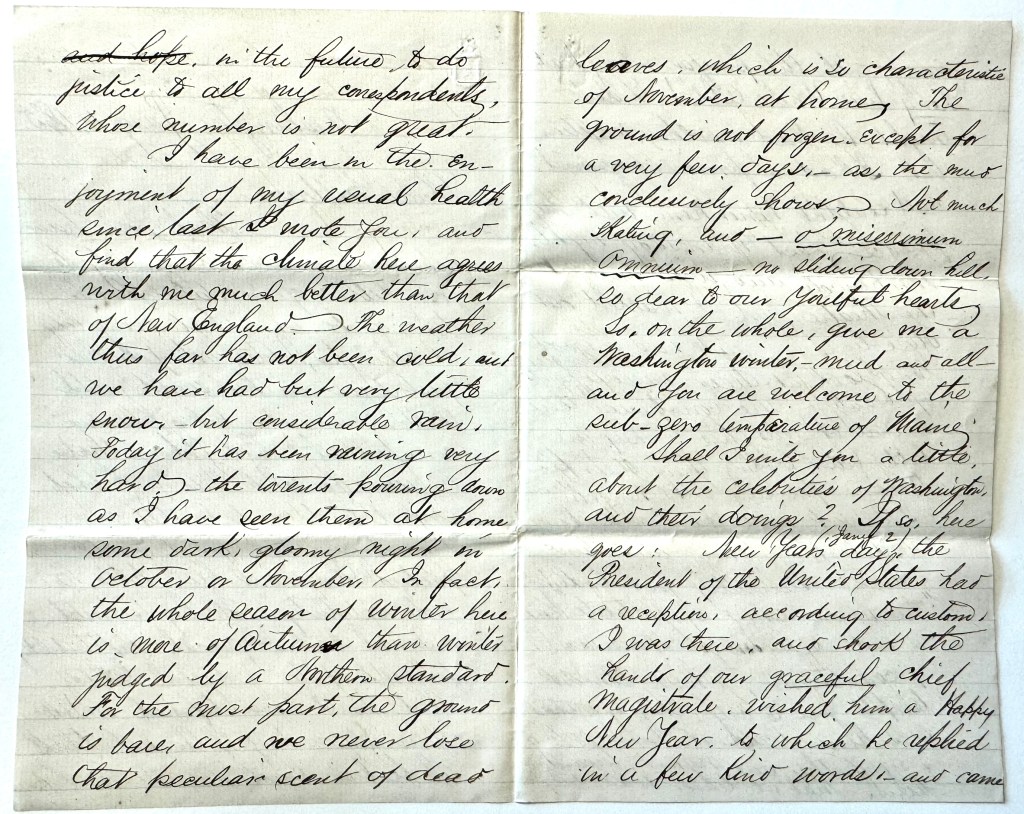 and hope, in the future, to do
justice to all my correspondents,
whose number is not great.
I have been in the en-
joyment of my usual health
since last I wrote you, and
find that the climate here agrees
with me much better than that
of New England. The weather
thus far has not been cold, and
we have had but very little
snow, - but considerable rain.
Today it has been raining very
hard, the torrents pouring down
as I have seen them at home
some dark, gloomy night in
October or November. In fact,
the whole season of winter here
is more of Autumn than winter
judged by a Northern standard.
For the most part, the ground
is bare, and we never lose
that peculiar scent of dead
leaves, which is so characteristic
of November, at home. The
ground is not frozen except for
a very few days, - as, the mud
conclusively shows. Not much
skating, and - o miserrimum
omnium - no sliding down hill
so dear to our youthful hearts.
So, on the whole, give me a
Washington winter, - mud and all -
and you are welcome to the
sub-zero temperature of Maine.
Shall I write you a little,
about the celebrities of Washington,
and their doings? If so, here
goes: New Years day, (Jany 2) the
President of the United States had
a reception, according to custom.
I was there, and shook the
hands of our graceful chief
Magistrate, wished him a Happy
New Year, to which he replied
in a few kind words, - and came